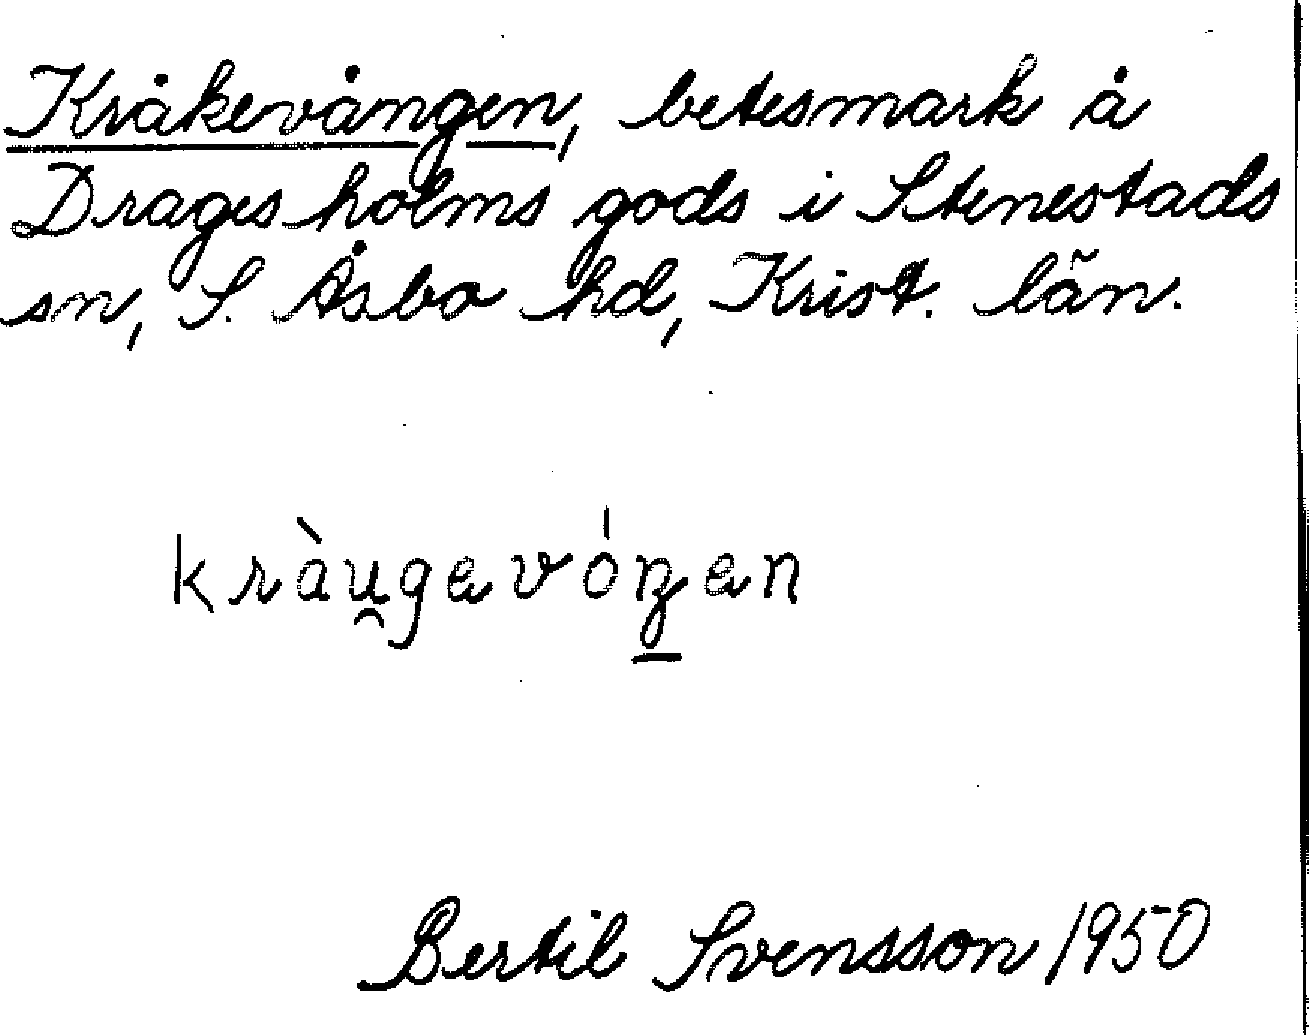 Kråkevången, betesmark å
Dragesholms gods i Stenestads
sn, S. Åsbo hd, Krist. län.
kràu̯gavóŋan
Bertil Svensson 1950